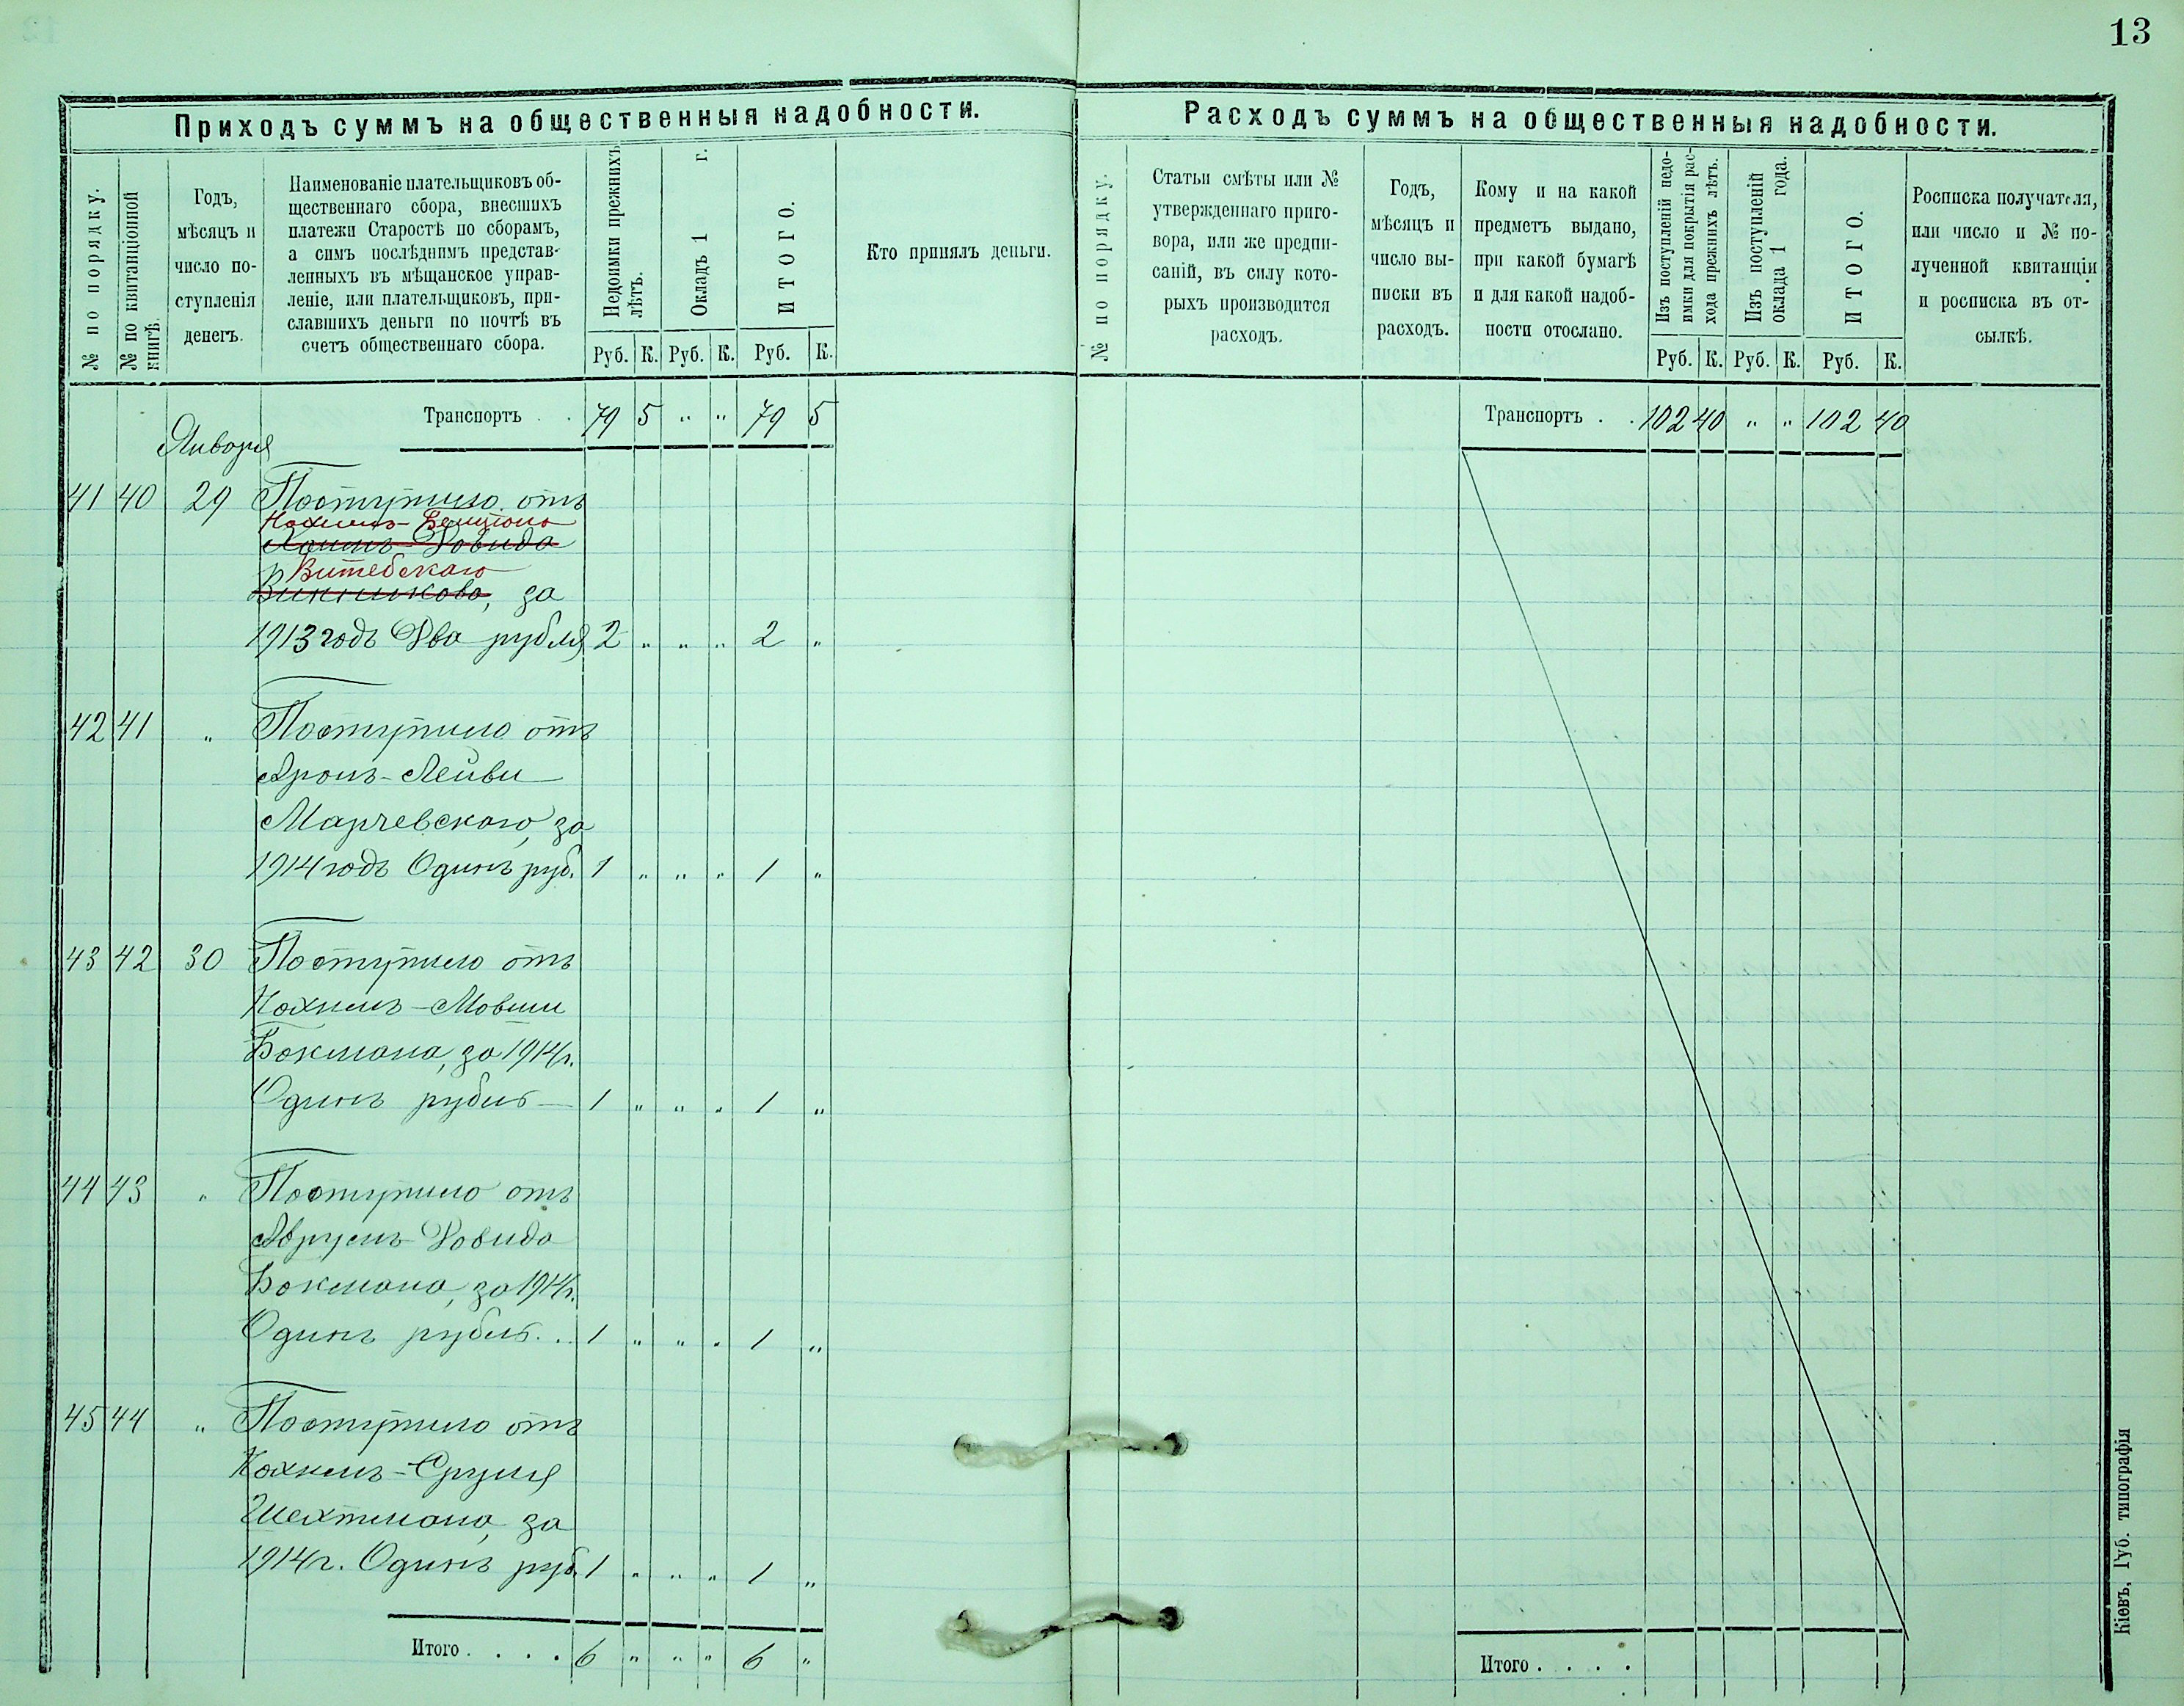 13
Приходъ суммъ на общественныя надобности.
№ по порядку.
№ по квитанціонной
книгѣ.
Годъ,
мѣсяцъ и
число по-
ступленія
денегъ.
Наименованіе плательщиковъ об-
щественнаго сбора, внесшихъ
платежи Старостѣ по сборамъ,
а симъ послѣднимъ представ-
ленныхъ въ мѣщанское управ-
леніе, или плательщиковъ, при-
славшихъ деньги по почтѣ въ
счетъ общественнаго сбора.
Недоимки прежнихъ
лѣтъ.
Окладъ 1 г.
ИТОГО.
Кто принялъ деньги.
Руб. К. Руб. К. Руб. К.
Транспортъ . . 79 5 " " 79 5
Января
41 40 29 Поступило отъ
Нахмнъ-Бенціона
Хаимъ-Довида
Витебскаго
Винникова, за
1913 годъ Два рубля 2 " " " 2 "
42 41 " Поступило отъ
Аронъ-Лейви
Марчевскаго, за
1914 годъ Одинъ руб. 1 " " " 1 "
43 42 30 Поступило отъ
Нахмнъ-Мовши
Бокмана, за 1914 г.
Одинъ рубль — 1 " " " 1 "
44 43 " Поступило отъ
Аврумъ-Довида
Бокмана, за 1914 г.
Одинъ рубль . . 1 " " " 1 "
45 44 " Поступило отъ
Нахмнъ-Сруля
Шехтмана, за
1914 г. Одинъ руб. 1 " " " 1 "
Итого . . . . 6 " " " 6 "
Расходъ суммъ на общественныя надобности.
№ по порядку.
Статьи смѣты или №
утвержденнаго приго-
вора, или же предпи-
саній, въ силу кото-
рыхъ производится
расходъ.
Годъ,
мѣсяцъ и
число вы-
писки въ
расходъ.
Кому и на какой
предметъ выдано,
при какой бумагѣ
и для какой надоб-
ности отослано.
Изъ поступленій недо-
имки для покрытія рас-
хода прежнихъ лѣтъ.
Изъ поступленій
оклада 1 года.
ИТОГО.
Росписка получателя,
или число и № по-
лученной квитанціи
и росписка въ от-
сылкѣ.
Руб. К. Руб. К. Руб. К.
Транспортъ . . 102 40 " " 102 40
Итого . . . .
Кіевъ, Губ. типографія